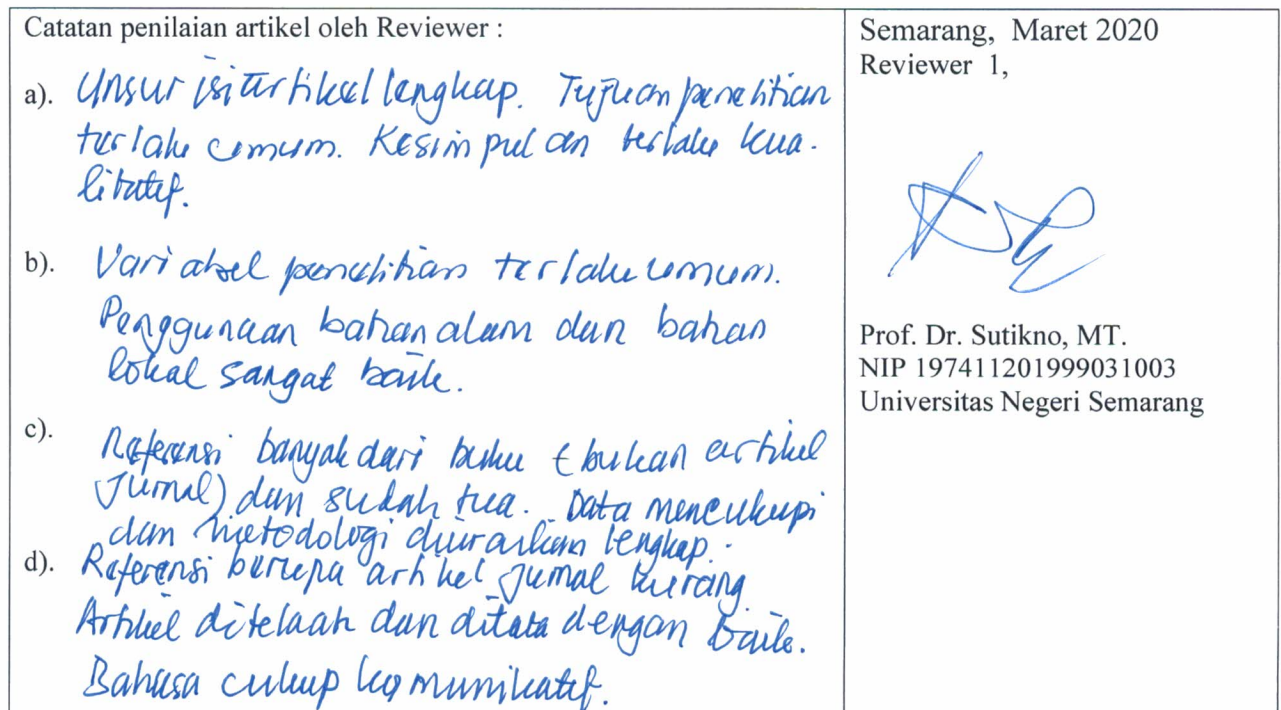 Catatan penilaian artikel oleh Reviewer :
a). Unsur isi artikel lengkap. Tujuan penelitian
terlalu umum. Kesimpulan terlalu kua-
litatif.
b). Variabel penelitian terlalu umum.
Penggunaan bahan alam dan bahan
lokal sangat baik.
c). Referensi banyak dari buku (bukan artikel
Jurnal) dan sudah tua. Data mencukupi
dan metodologi diuraikan lengkap.
d). Referensi berupa artikel Jurnal kurang.
Artikel ditelaah dan ditata dengan baik.
Bahasa cukup komunikatif.
Semarang, Maret 2020
Reviewer 1,
Prof. Dr. Sutikno, MT.
NIP 197411201999031003
Universitas Negeri Semarang